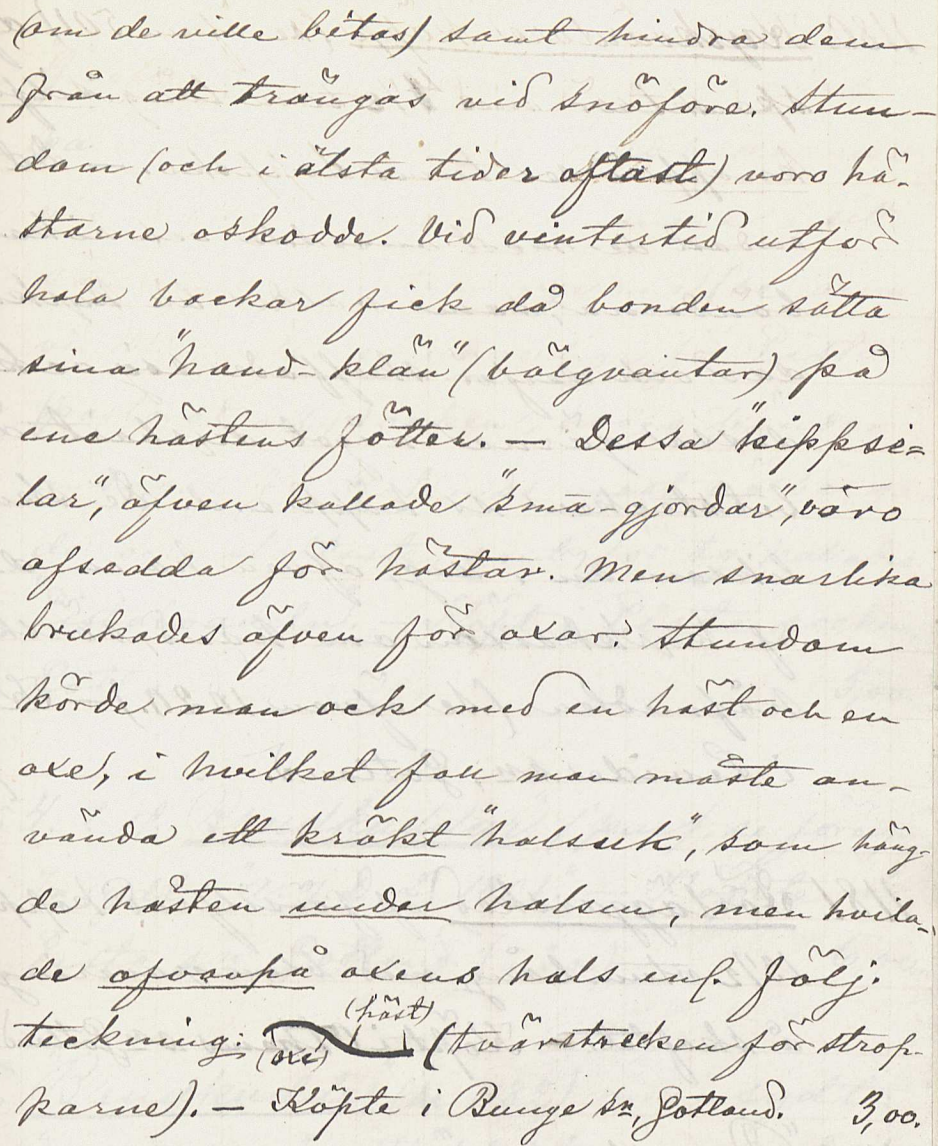 (om de ville bitas) samt hindra dem
från att trängas vid snöföre. Stun-
dom (och i älsta tider oftast) voro hä-
starne oskodde. Vid vintertid utför
hala backar fick då bonden sätta
sina "hand-klän" (bälgvantar) på
ene hästens fötter. — Dessa "kippse-
lar", äfven kallade "små-gjordar", voro
afsedda för hästar. Men snarlika
brukades äfven för oxar. Stundom
körde man ock med en häst och en
oxe, i hvilket fall man måste an-
vända ett kräkt "halsuk", som häng-
de hästen under halsen, men hvila-
de ofvanpå oxens hals enl. följ.
(häst)
teckning: (oxe) (tvärstrecken för strop-
parne). — Köpte i Bunge sn, Gotland. 3,00.